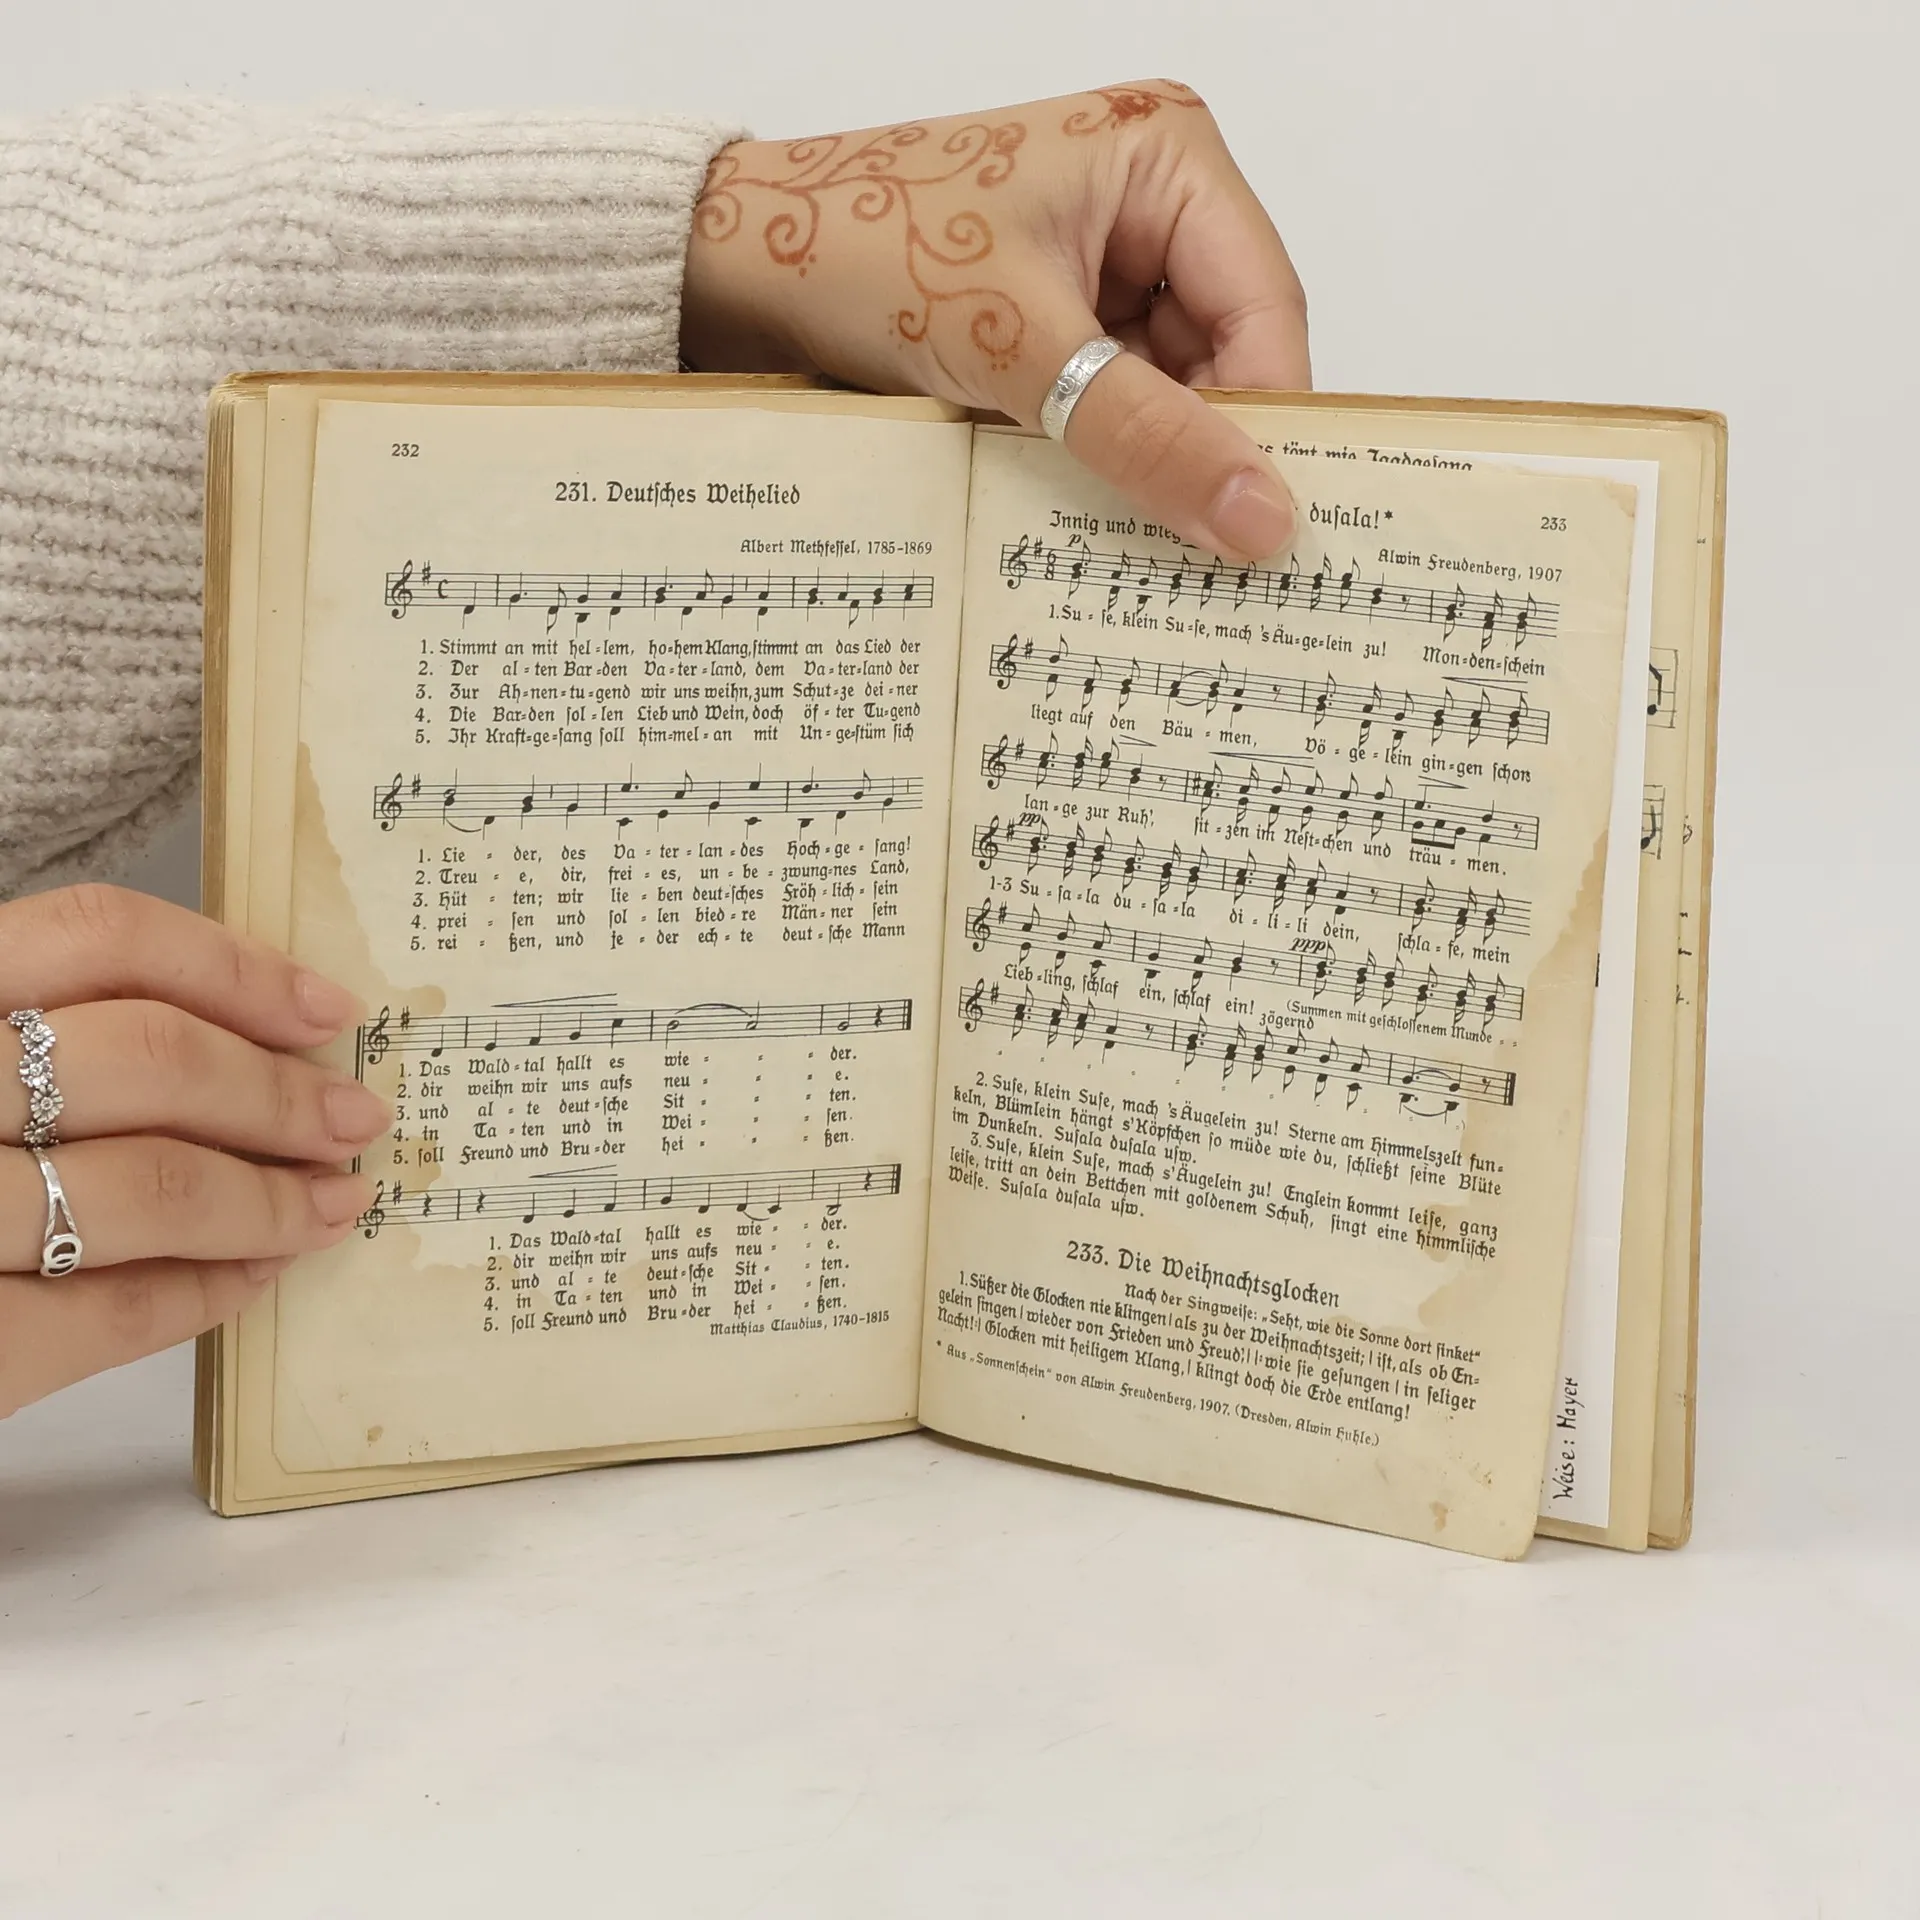 232
231. Deutſches Weihelied
Albert Methfeſſel, 1785-1869
1. Stimmt an mit hel=lem, ho=hem Klang, ſtimmt an das Lied der
2. Der al=ten Bar=den Va=ter=land, dem Va=ter=land der
3. Zur Ah=nen=tu=gend wir uns weihn, zum Schut=ze dei=ner
4. Die Bar=den ſol=len Lieb und Wein, doch öf=ter Tu=gend
5. Ihr Kraft=ge=ſang ſoll him=mel=an mit Un=ge=ſtüm ſich
1. Lie = der, des Va=ter=lan=des Hoch=ge=ſang!
2. Treu = e, dir, frei=es, un=be=zwung=nes Land,
3. Hüt = ten; wir lie=ben deut=ſches Fröh=lich=ſein
4. prei = ſen und ſol=len bied=re Män=ner ſein
5. rei = ßen, und je=der ech=te deut=ſche Mann
1. Das Wald=tal hallt es wie = = = der.
2. dir weihn wir uns aufs neu = = = e.
3. und al=te deut=ſche Sit = = = ten.
4. in Ta=ten und in Wei = = = ſen.
5. ſoll Freund und Bru=der hei = = = ßen.
1. Das Wald=tal hallt es wie = = der.
2. dir weihn wir uns aufs neu = = e.
3. und al=te deut=ſche Sit = = ten.
4. in Ta=ten und in Wei = = ſen.
5. ſoll Freund und Bru=der hei = = ßen.
Matthias Claudius, 1740-1815
tönt wie Jagdgeſang
duſala!*
233
Innig und
Alwin Freudenberg, 1907
p
1. Su=ſe, klein Su=ſe, mach 's Äu=ge=lein zu! Mon=den=ſchein
liegt auf den Bäu=men, Vö=ge=lein gin=gen ſchon
lan=ge zur Ruh', ſit=zen im Neſt=chen und träu=men.
ppp
1-3 Su=ſa=la du=ſa=la di=li=li dein, ſchla=fe, mein
pppp
Lieb=ling, ſchlaf ein, ſchlaf ein! (Summen mit geſchloſſenem Munde
zögernd
2. Suſe, klein Suſe, mach 's Äugelein zu! Sterne am Himmelszelt fun=
keln, Blümlein hängt s'Köpfchen ſo müde wie du, ſchließt ſeine Blüte
im Dunkeln. Suſala duſala uſw.
3. Suſe, klein Suſe, mach s'Äugelein zu! Englein kommt leiſe, ganz
leiſe, tritt an dein Bettchen mit goldenem Schuh, ſingt eine himmliſche
Weiſe. Suſala duſala uſw.
233. Die Weihnachtsglocken
Nach der Singweiſe: „Seht, wie die Sonne dort ſinket“
1. Süßer die Glocken nie klingen | als zu der Weihnachtszeit; | iſt, als ob En=
gelein ſingen | wieder von Frieden und Freud', | |: wie ſie geſungen | in ſeliger
Nacht! :| Glocken mit heiligem Klang, | klingt doch die Erde entlang!
* Aus „Sonnenſchein“ von Alwin Freudenberg, 1907. (Dresden, Alwin Huhle.)
Weise: Mayer